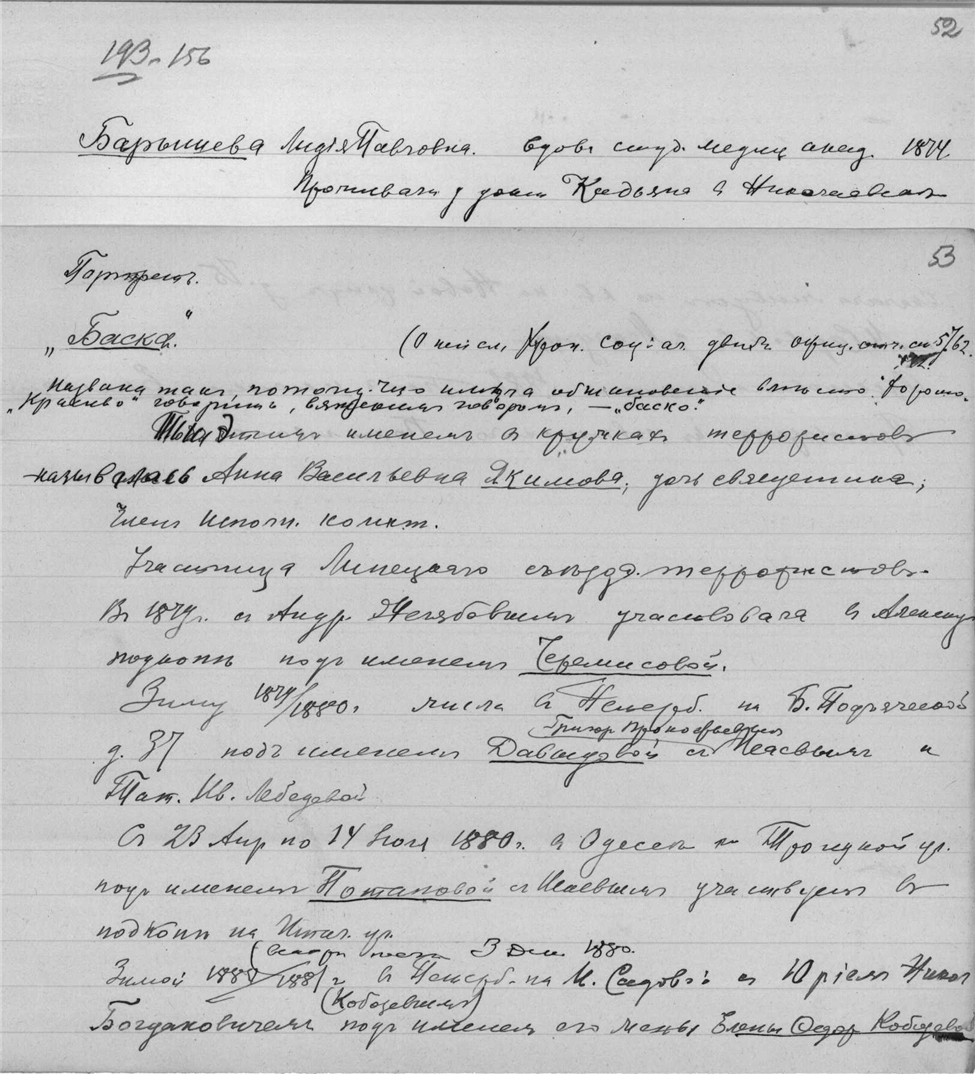 52
193-156
Барышева Лидія Павловна. вдова студ. медиц. акад. 1874.
Проживала у Кадьяна в Николаевск
53
Портретъ.
„Баска." (О числ. Хрон. соціал. движ. офиц. 57/62.
Названа такъ, потому что имѣла обыкновеніе вмѣсто „хорошо",
„Красиво" говорить, вятскимъ говоромъ, — „баско".
Подъ этимъ именемъ въ кружкахъ террористовъ
называлась Анна Васильевна Якимова, дочь священника,
Членъ Исполн. комит.
Участница Липецкаго съѣзда террористовъ.
Въ 1879 г. съ Андр. Желябовымъ участвовала в Александр
подкопѣ подъ именемъ Черемисовой.
Зиму 1879/1880 г. жила въ Петерб. на Б. Подъяческой
Григор Прокофьевичемъ
д. 37 подъ именемъ Давыдовой съ Исаевымъ и
Тат. Ив. Лебедевой
Съ 23 Апр по 14 1880 г. в Одессѣ на Троицкой ул.
подъ именемъ Потаповой съ Исаевымъ участвуетъ въ
подкопѣ на Итал. ул.
3 Дек. 1880.
Зимой 1880/1881 г. въ Петерб. на М. Садовой съ Юріемъ Никол
(Кобозевымъ)
Богдановичемъ подъ именемъ его жены Елены Федор Кобозевой